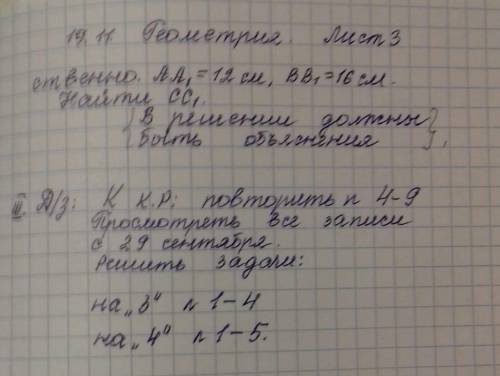 19.11. Геометрия. Лист 3
ственно. АА₁ = 12 см, ВВ₁ = 16 см.
Найти СС₁.
{В решении должны
быть объяснения}.
III. Д/з: К К.Р.: повторить п 4-9
Просмотреть все записи
с 29 сентября.
Решить задачи:
на „3" № 1-4
на „4" № 1-5.